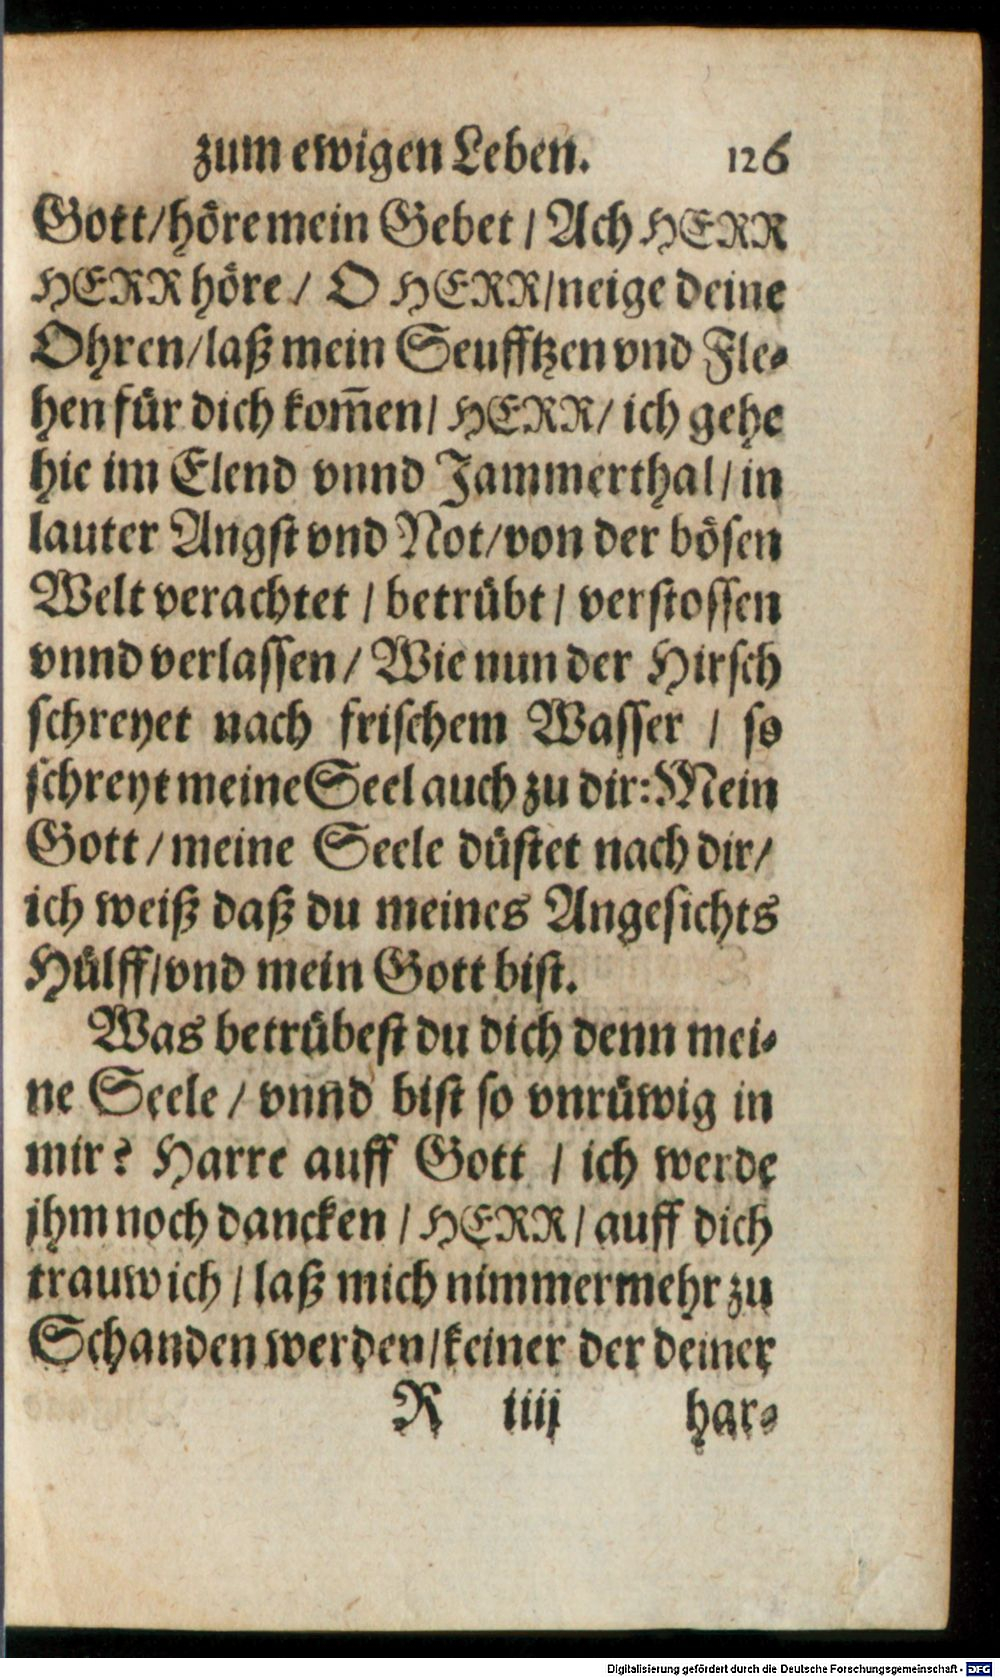 zum ewigen Leben. 126
Gott/höre mein Gebet / Ach HERR
HERR höre / O HERR/neige deine
Ohren/laß mein Seufftzen vnd Fle-
hen für dich kom̃en/ HERR/ ich gehe
hie im Elend vnnd Jammerthal/in
lauter Angst vnd Not/von der bösen
Welt verachtet / betrübt / verstossen
vnnd verlassen/ Wie nun der Hirsch
schreyet nach frischem Wasser / so
schreyt meine Seel auch zu dir: Mein
Gott / meine Seele düstet nach dir/
ich weiß daß du meines Angesichts
Hülff/vnd mein Gott bist.
Was betrübest du dich denn mei-
ne Seele / vnnd bist so vnrüwig in
mir? Harre auff Gott / ich werde
jhm noch dancken / HERR / auff dich
trauw ich / laß mich nimmermehr zu
Schanden werden/keiner der deiner
R iiij har-
Digitalisierung gefördert durch die Deutsche Forschungsgemeinschaft - DFG